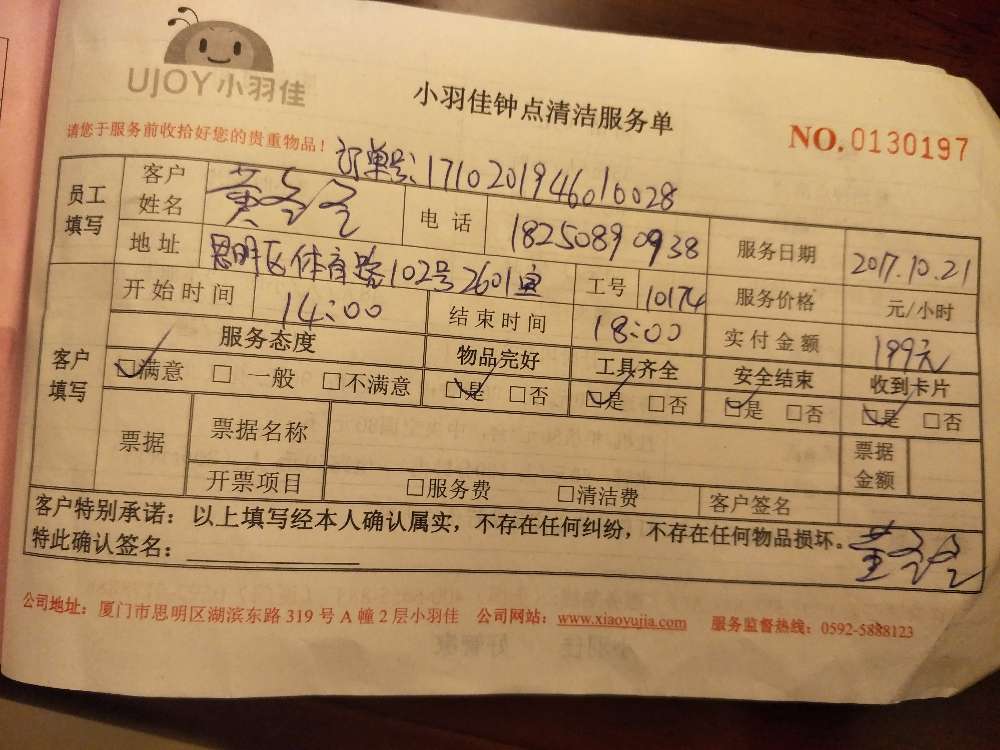 UJOY小羽佳
小羽佳钟点清洁服务单
NO.0130197
请您于服务前收拾好您的贵重物品！
订单号:1710201946010028
员工填写 客户姓名 黄 电话 18250890938 服务日期 2017.10.21
地址 思明区体育路102号2601室 工号 10174 服务价格 元/小时
客户填写 开始时间 14:00 结束时间 18:00 实付金额 199元
服务态度 物品完好 工具齐全 安全结束 收到卡片
☑满意 □一般 □不满意 ☑是 □否 ☑是 □否 ☑是 □否 ☑是 □否
票据 票据名称 票据金额
开票项目 □服务费 □清洁费 客户签名
客户特别承诺：以上填写经本人确认属实，不存在任何纠纷，不存在任何物品损坏。
特此确认签名：
公司地址：厦门市思明区湖滨东路 319 号 A 幢 2 层小羽佳 公司网站：www.xiaoyujia.com 服务监督热线：0592-5888123